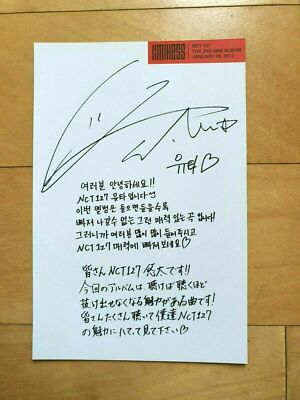 NCT 127
THE 2ND MINI ALBUM
유타♡
여러분 안녕하세요!!
NCT127 유타입니다♡
이번 앨범은 들으면들을수록
빠져 나갈수 없는 그런 매력 있는 곡 입니다!
그러니까 여러분 많이 많이 들어주시고
NCT127 매력에 빠져보세요♡
皆さん NCT127 悠太です!!
今回のアルバムは 聴けば聴くほど
抜け出せなくなる魅力がある曲です!
皆さんたくさん聴いて僕達NCT127
の魅力にハマって見て下さい♡